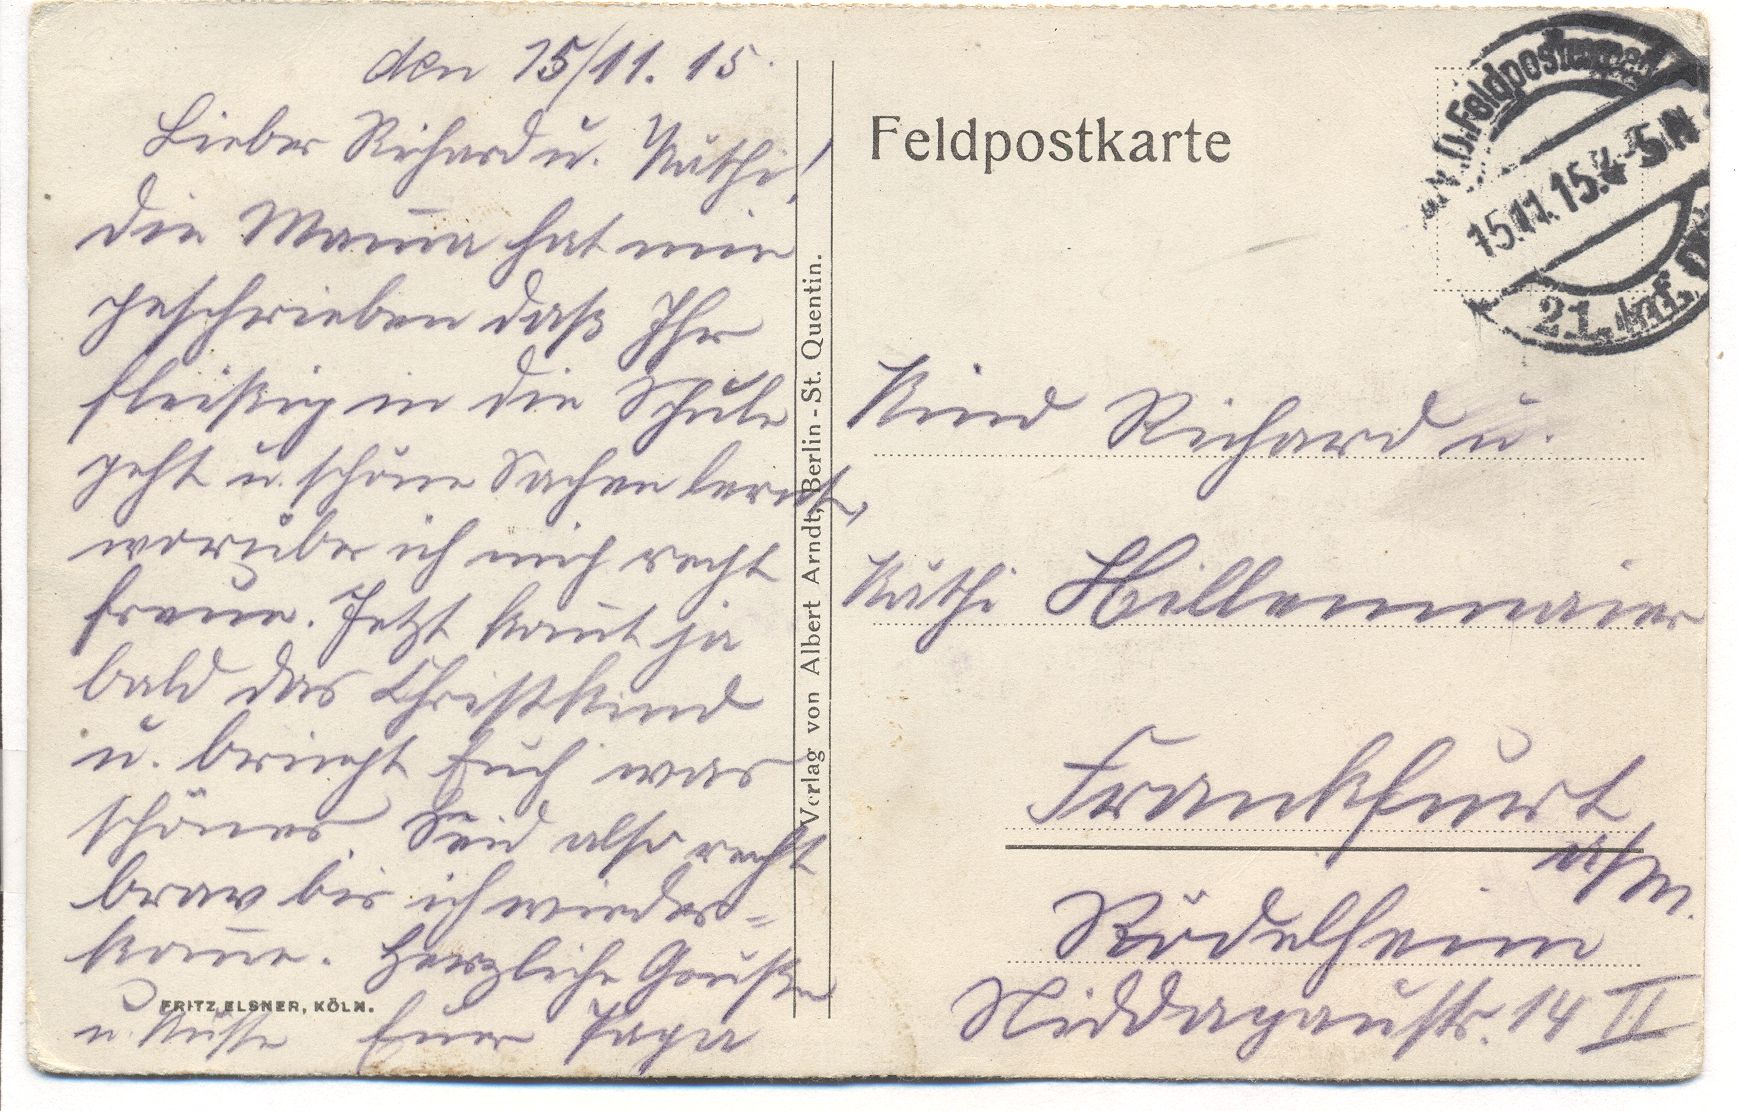 den 15/11. 15.
Lieber Richard u. Käthi!
Die Mama hat mir
geschrieben daß Ihr
fleißig in die Schule
geht u. schöne Sachen lernt,
worüber ich mich recht
freue. Jetzt kom̅t ja
bald das Christkind
u. bringt Euch was
schönes. Seid also recht
brav bis ich wieder-
kom̅e. Herzliche Grüße
u. Küsse Euer Papa
FRITZ ELSNER, KÖLN.
Verlag von Albert Arndt, Berlin - St. Quentin.
Feldpostkarte
D. Feldpost
15.11.15. 4-5 N
21. Inf.
Kind Richard u.
Käthi Hillenmaier
Frankfurt
a/M.
Rödelheim
Niddagaustr. 14 II